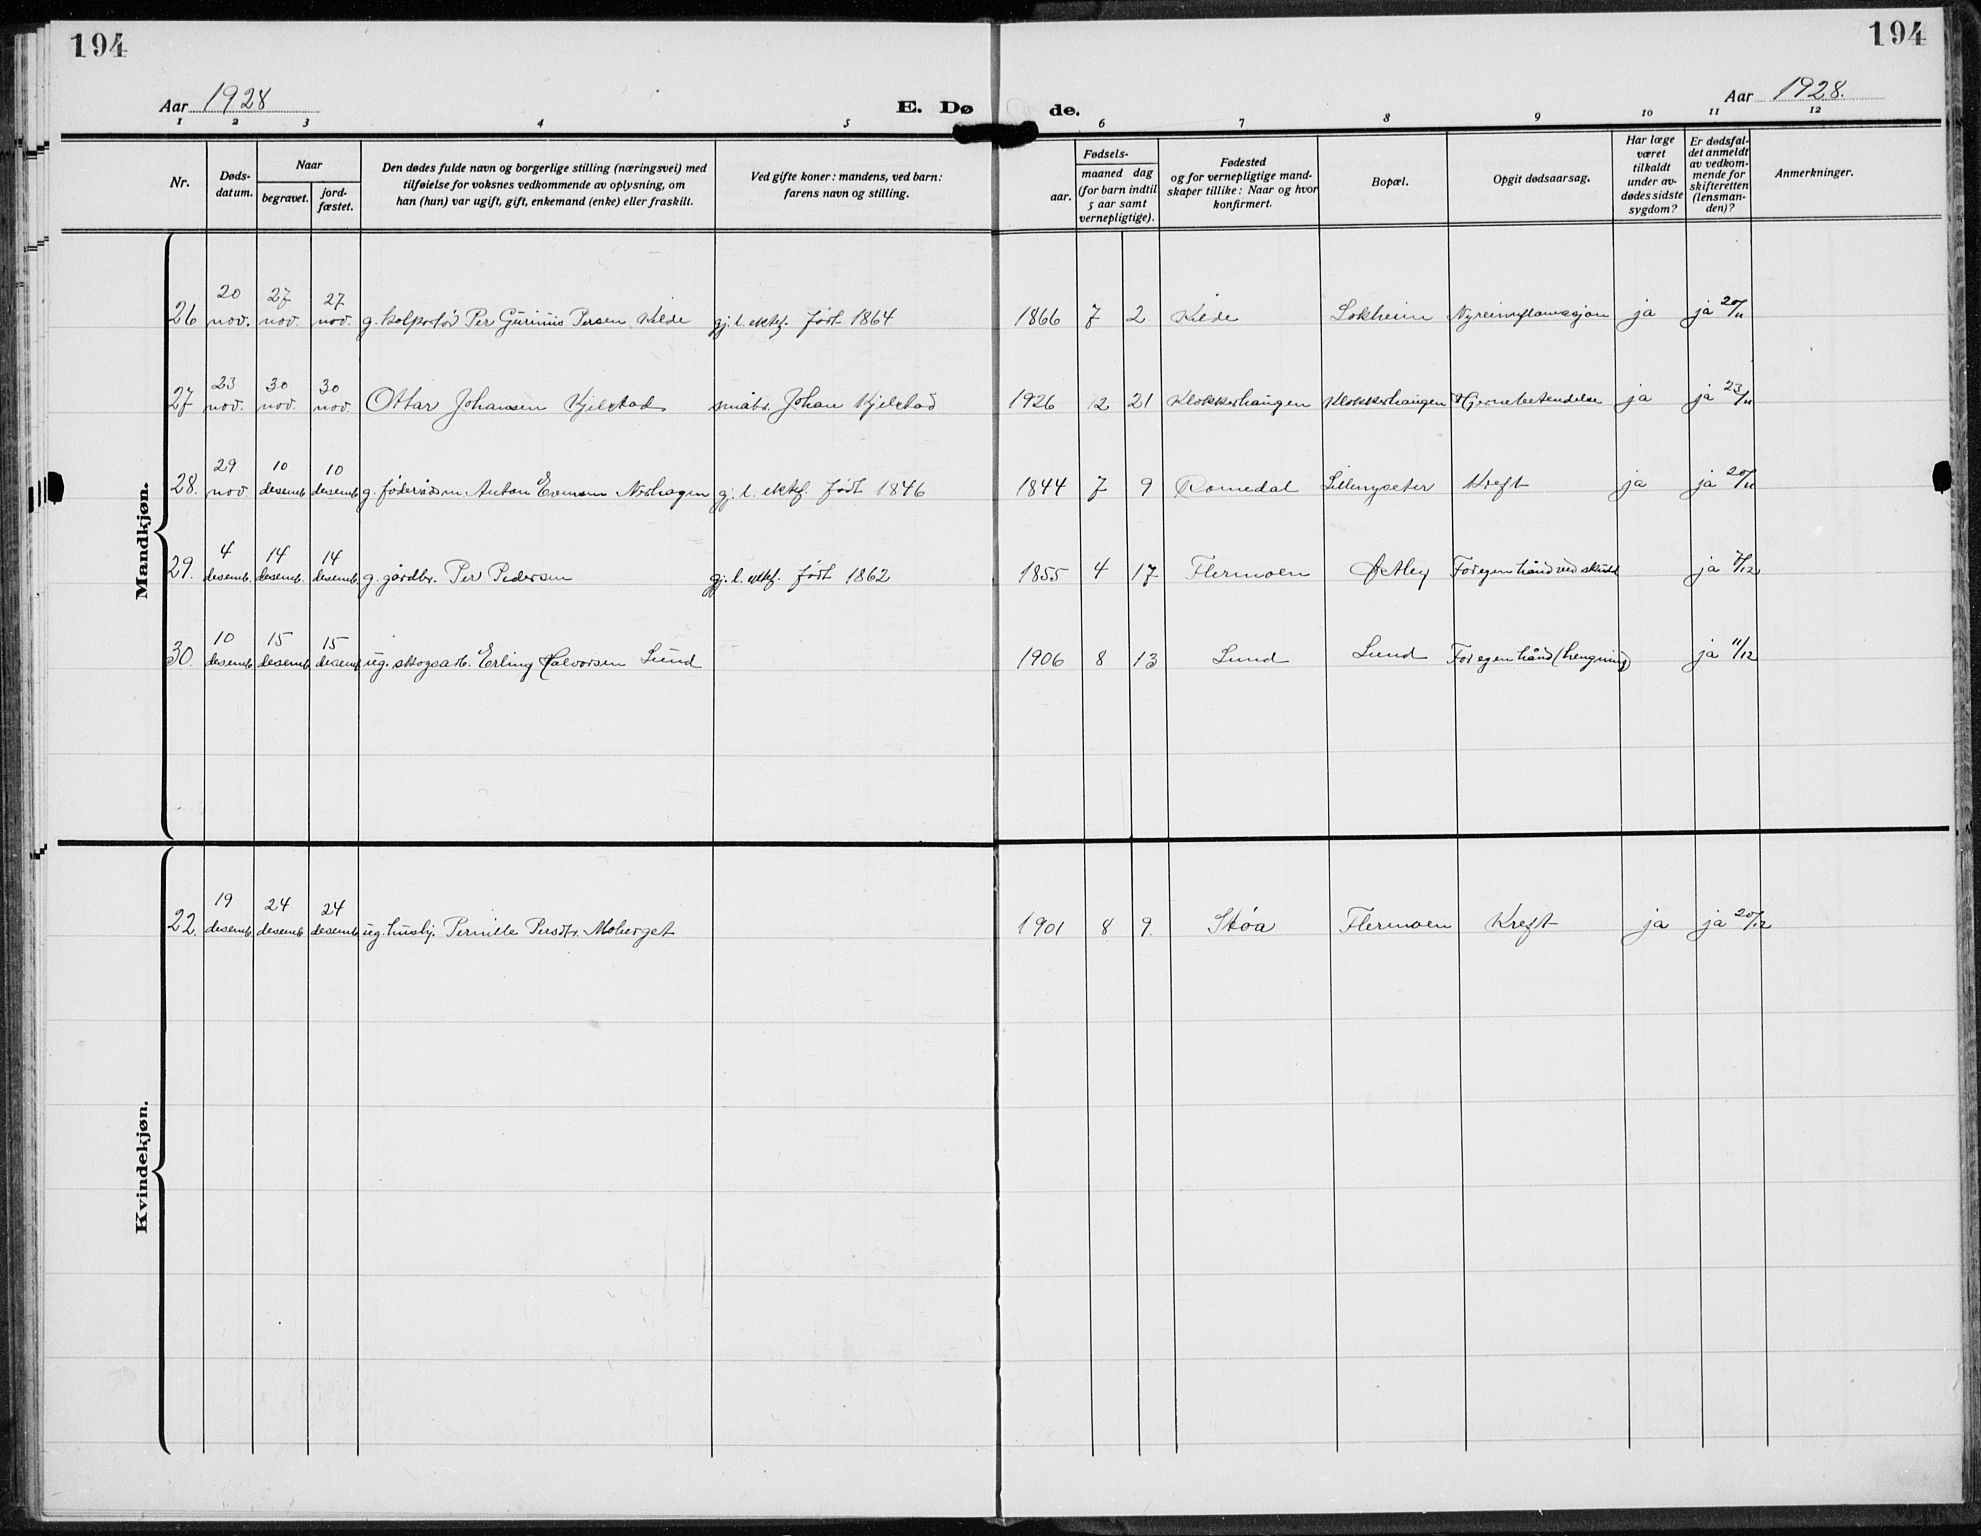 194
194
Aar 1928
E. Dø
de.
Aar 1928.
1 2 3 4 5 6 7 8 9 10 11 12
Nr.
Døds-
datum.
Naar
begravet.
jord-
fæstet.
Den dødes fulde navn og borgerlige stilling (næringsvei) med
tilføielse for voksnes vedkommende av oplysning, om
han (hun) var ugift, gift, enkemand (enke) eller fraskilt.
Ved gifte koner: mandens, ved barn:
farens navn og stilling.
Fødsels-
aar.
maaned dag
(for barn indtil
5 aar samt
vernepligtige).
Fødested
og for vernepligtige mand-
skaper tillike: Naar og hvor
konfirmert.
Bopæl.
Opgit dødsaarsag.
Har læge
været
tilkaldt
under av-
dødes sidste
sygdom?
Er dødsfal-
det anmeldt
av vedkom-
mende for
skifteretten
(lensman-
den)?
Anmerkninger.
Mandkjøn.
20 27 27
26 nov. nov. nov. g. kolportør Per Gurinius Persen Kilde gj.l. ektef. født 1864 1866 7 2 Kilde Sokheim ja ja 20/11
23 30 30
27 nov. nov. nov. Ottar Johansen Kjelstad småbr. Johan Kjelstad 1926 12 21 Klokkerhaugen Klokkerhaugen Hjernebetendelse ja ja 23/11
29 10 10
28. nov. desemb. desemb. g. føderådsm. Anton Evensen Norhagen gj. l. ektef. født 1846 1844 7 9 Romedal Lillenyseter Kreft ja ja
4 14 14
29. desemb. desemb. desemb. g. gårdbr. Per Pedersen gj. l. ektef. født 1862 1855 4 17 Flermoen For egen hånd ved skudd ja 7/12
10 15 15
30. desemb. desemb. desemb. ug. skogsarb. Erling Halvorsen Lund 1906 8 13 Lund Lund For egen hånd (hengning) ja 11/12
Kvindekjøn.
19 24 24
22. desemb. desemb. desemb. ug. Pernille Persdtr. Moberget 1901 8 9. Støa Flermoen Kreft ja ja 20/12